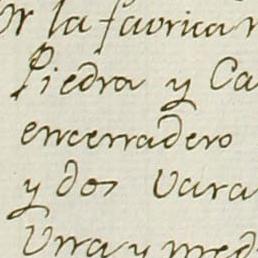 or la favrica
Piedra y Ca
encerradero
y dos Vara
Vna y med